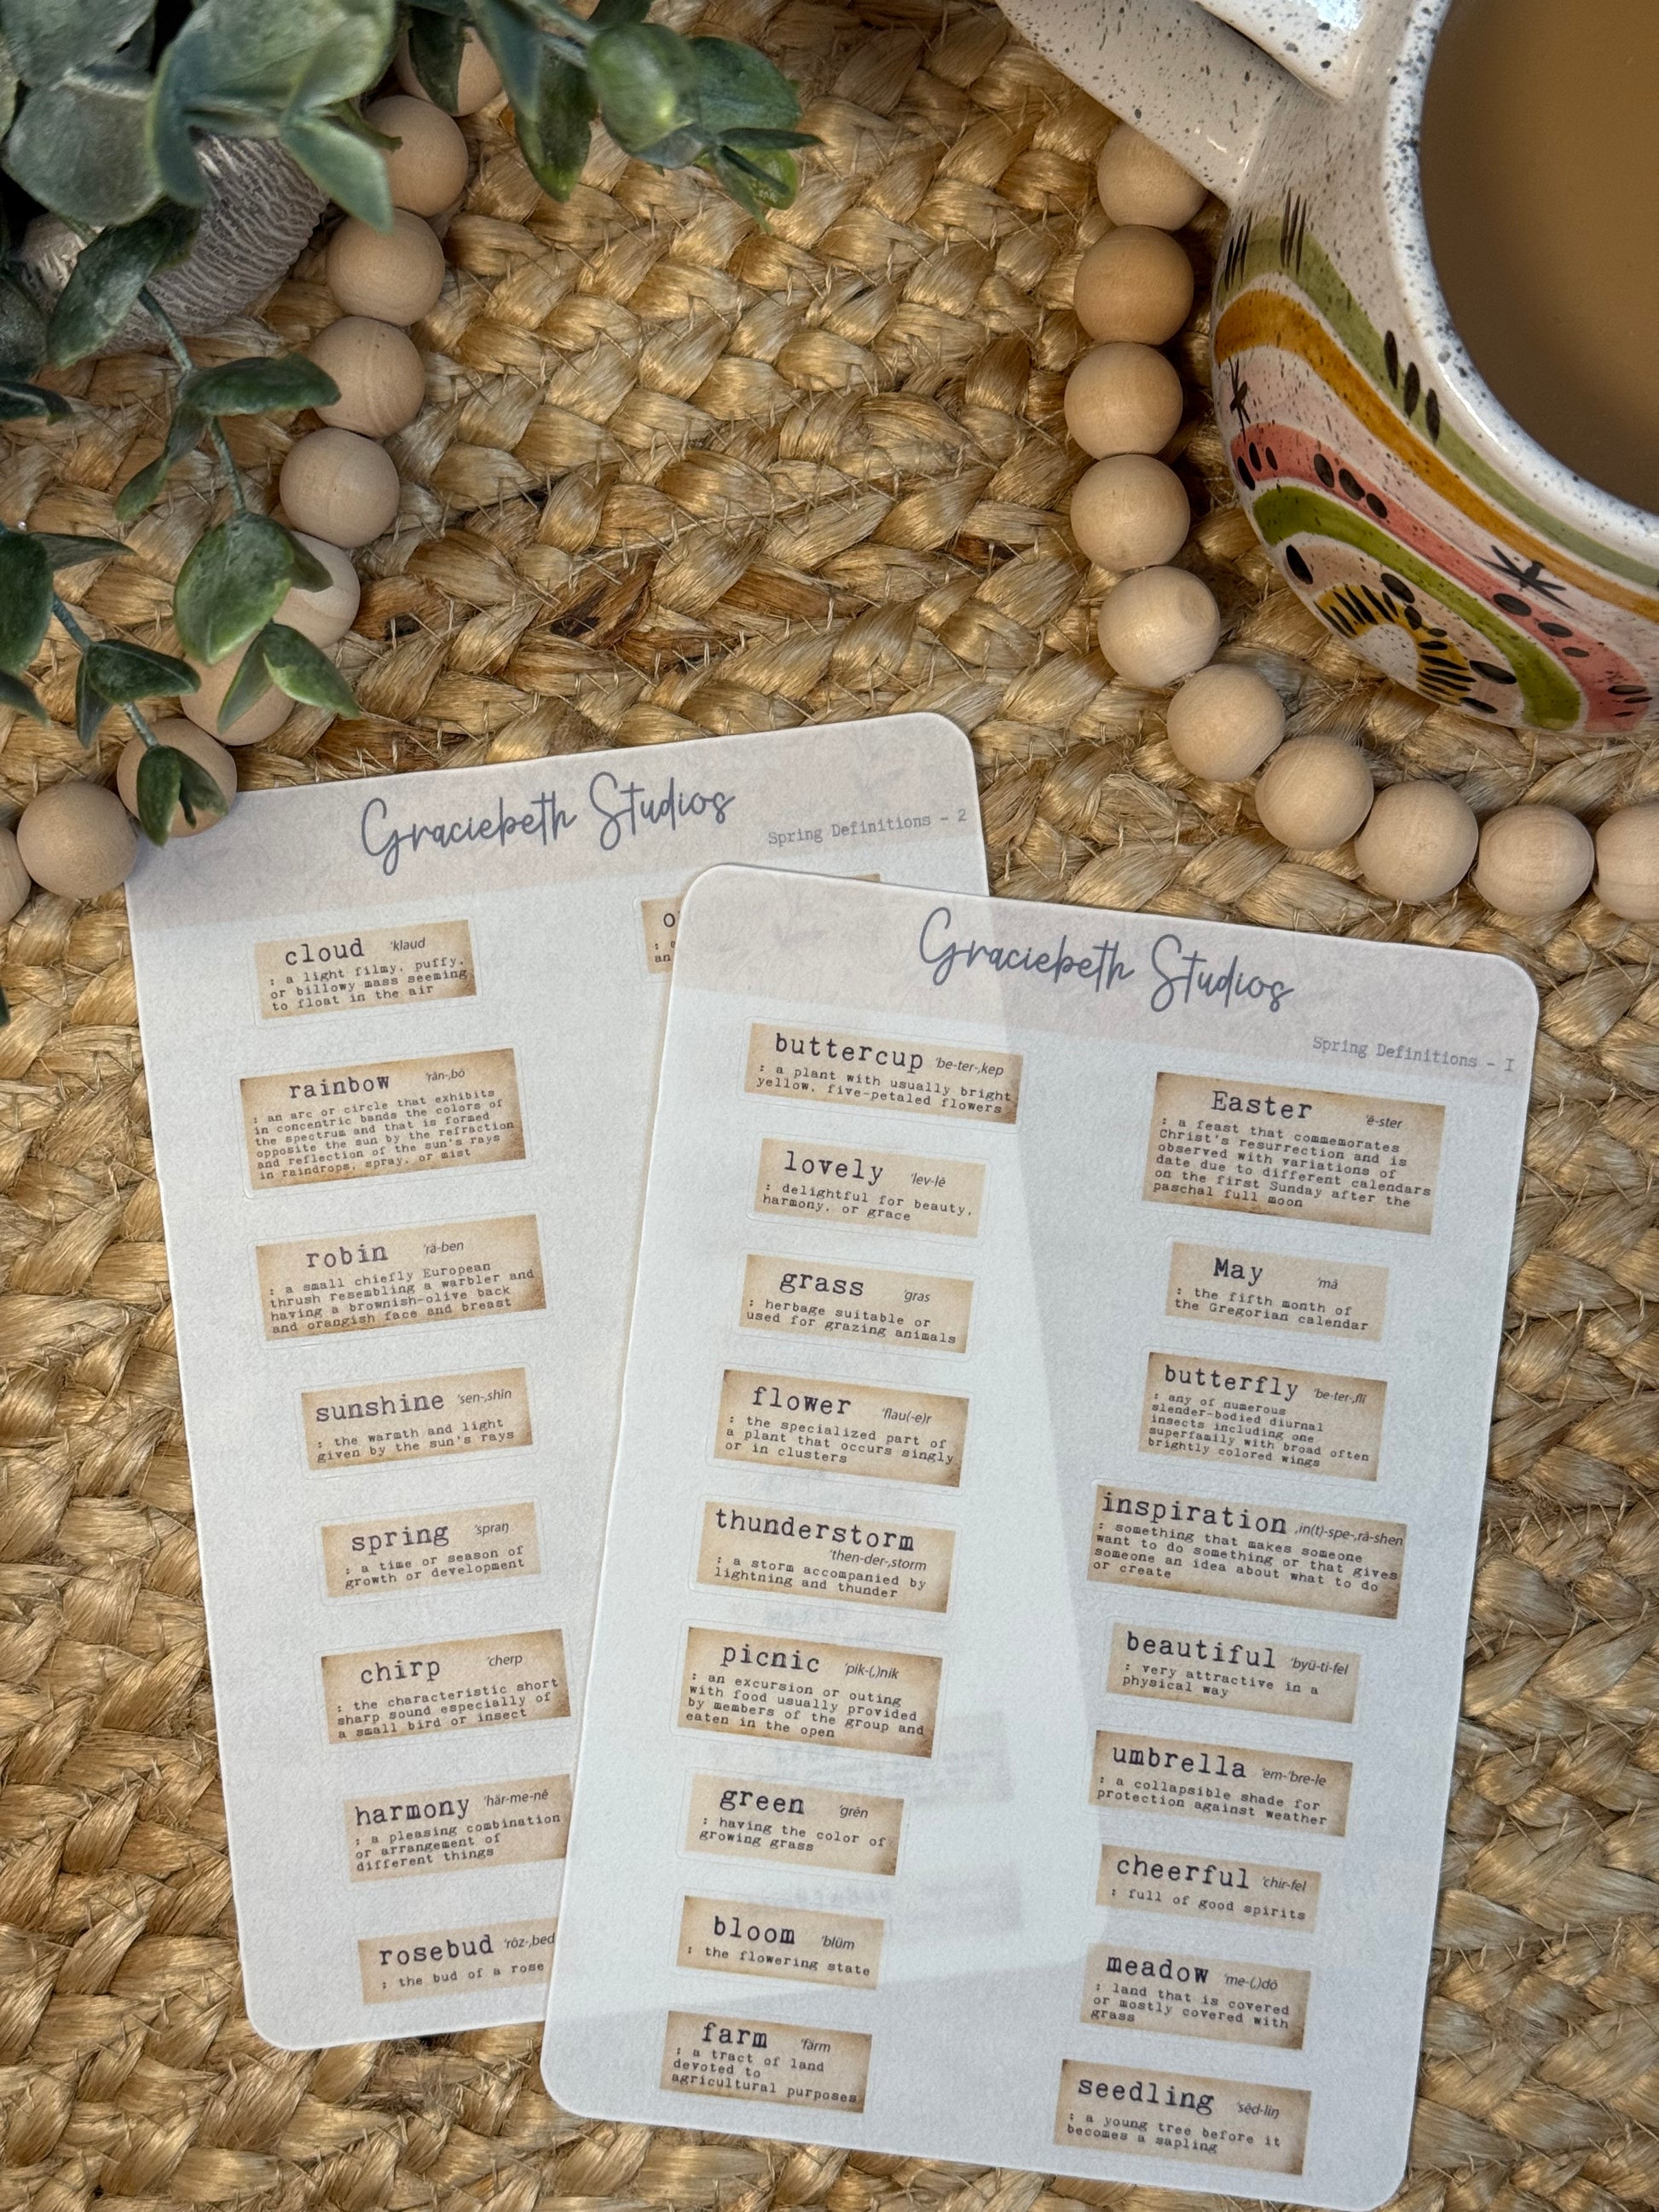 Graciebeth Studios
Spring Definitions - 2
cloud 'klaud
: a light filmy, puffy,
or billowy mass seeming
to float in the air
rainbow 'rān-,bō
: an arc or circle that exhibits
in concentric bands the colors of
the spectrum and that is formed
opposite the sun by the refraction
and reflection of the sun's rays
in raindrops, spray, or mist
robin 'rä-ben
: a small chiefly European
thrush resembling a warbler and
having a brownish-olive back
and orangish face and breast
sunshine 'sen-,shīn
: the warmth and light
given by the sun's rays
spring 'spraŋ
: a time or season of
growth or development
chirp 'cherp
: the characteristic short
sharp sound especially of
a small bird or insect
harmony 'här-me-nē
: a pleasing combination
or arrangement of
different things
rosebud 'rōz-,bed
: the bud of a rose
o
:
an
Graciebeth Studios
Spring Definitions - I
buttercup 'be-ter-,kep
: a plant with usually bright
yellow, five-petaled flowers
lovely 'lev-lē
: delightful for beauty,
harmony, or grace
grass 'gras
: herbage suitable or
used for grazing animals
flower 'flau(-e)r
: the specialized part of
a plant that occurs singly
or in clusters
thunderstorm
'then-der-,storm
: a storm accompanied by
lightning and thunder
picnic 'pik-(,)nik
: an excursion or outing
with food usually provided
by members of the group and
eaten in the open
green 'grēn
: having the color of
growing grass
bloom 'blüm
: the flowering state
farm 'färm
: a tract of land
devoted to
agricultural purposes
Easter 'ē-ster
: a feast that commemorates
Christ's resurrection and is
observed with variations of
date due to different calendars
on the first Sunday after the
paschal full moon
May 'mā
: the fifth month of
the Gregorian calendar
butterfly 'be-ter-,flī
: any of numerous
slender-bodied diurnal
insects including one
superfamily with broad often
brightly colored wings
inspiration ,in(t)-spe-,rā-shen
: something that makes someone
want to do something or that gives
someone an idea about what to do
or create
beautiful 'byü-ti-fel
: very attractive in a
physical way
umbrella 'em-'bre-le
: a collapsible shade for
protection against weather
cheerful 'chir-fel
: full of good spirits
meadow 'me-(,)dō
: land that is covered
or mostly covered with
grass
seedling 'sēd-liŋ
: a young tree before it
becomes a sapling